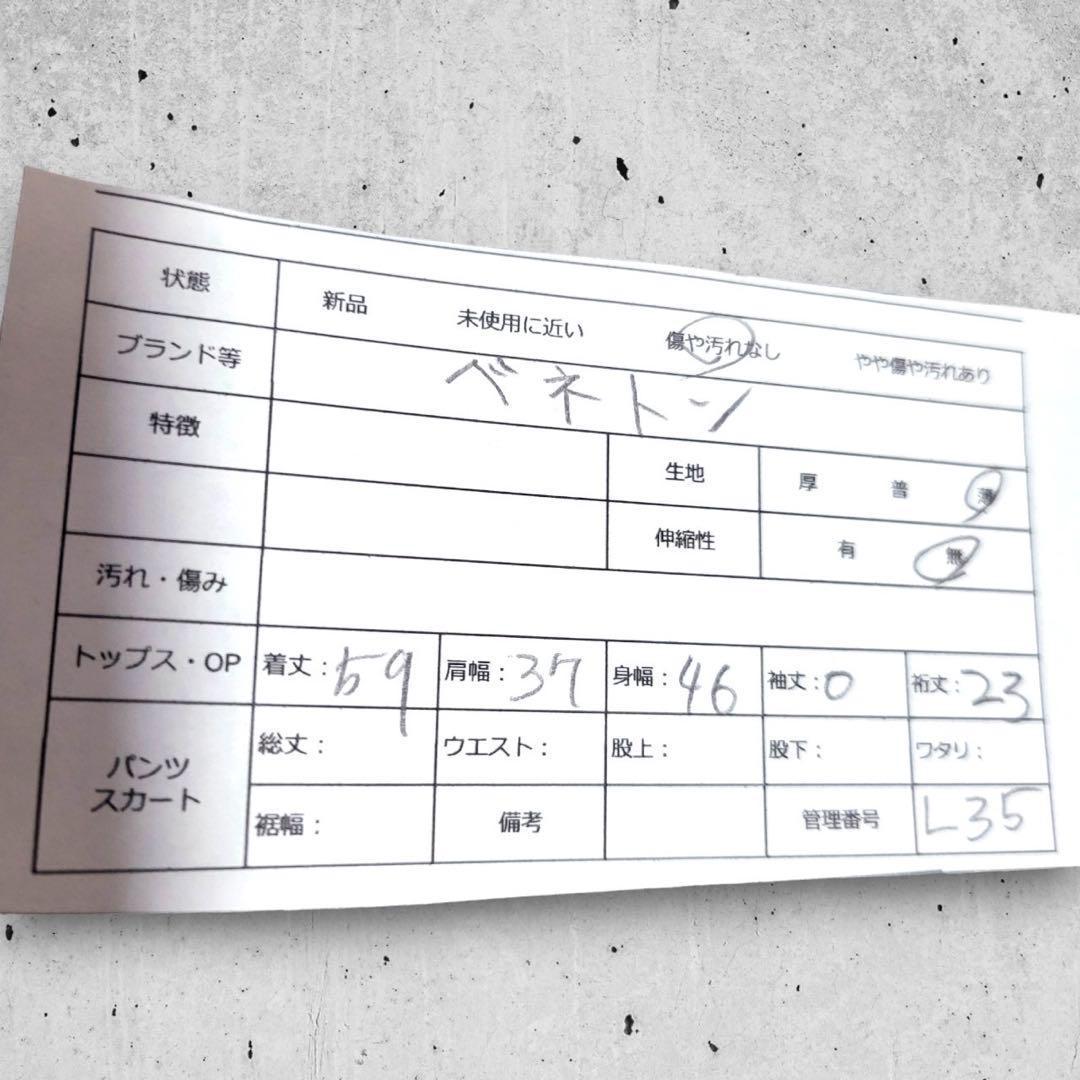 状態 新品 未使用に近い 傷や汚れなし やや傷や汚れあり
ブランド等 ベネトン
特徴 生地 厚 普 薄
伸縮性 有 無
汚れ・傷み
トップス・OP 着丈：59 肩幅：37 身幅：46 袖丈：0 裄丈：23
パンツ スカート 総丈： ウエスト： 股上： 股下： ワタリ：
裾幅： 備考 管理番号 L35